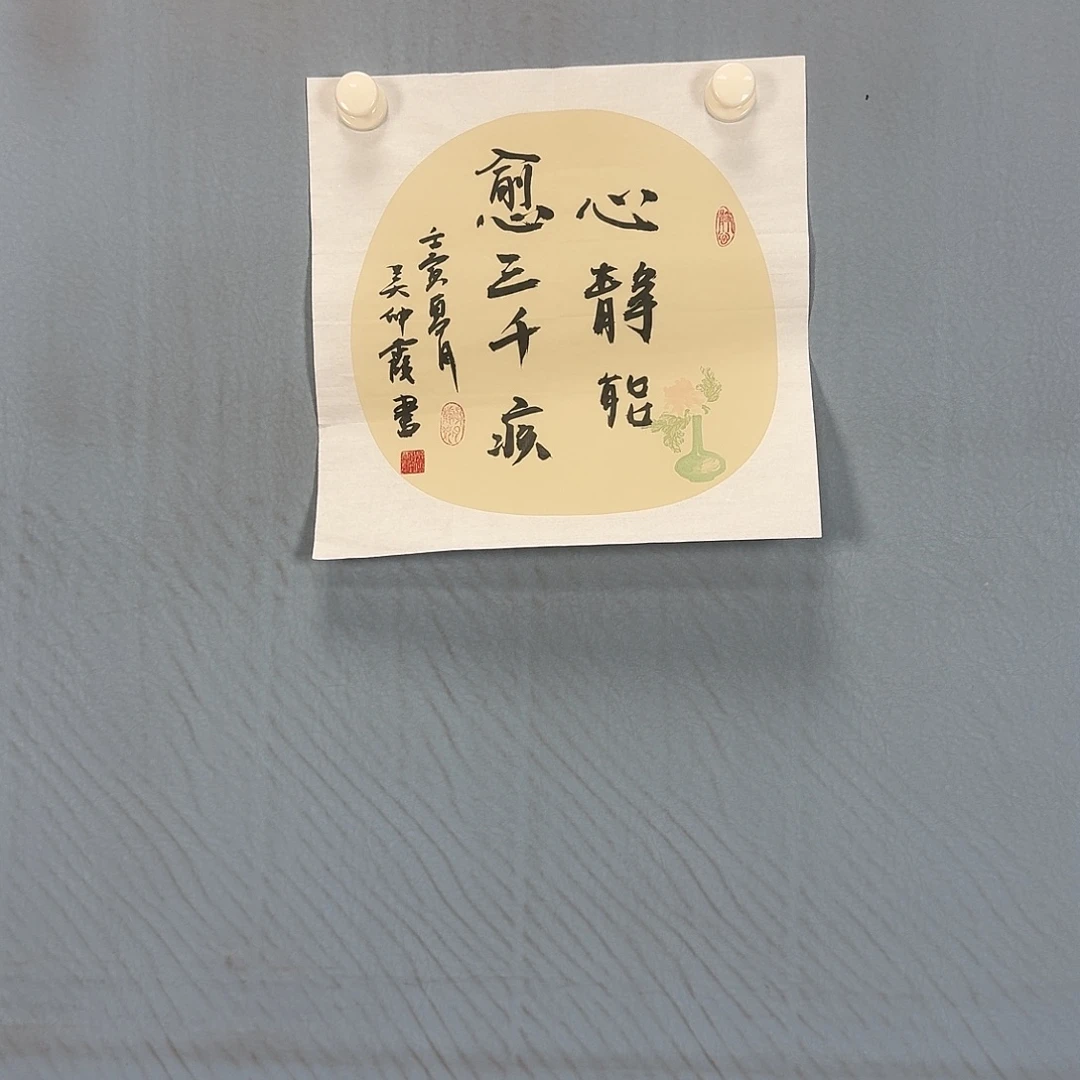 心静能
愈三千疾
壬寅夏月
吴仲霞書